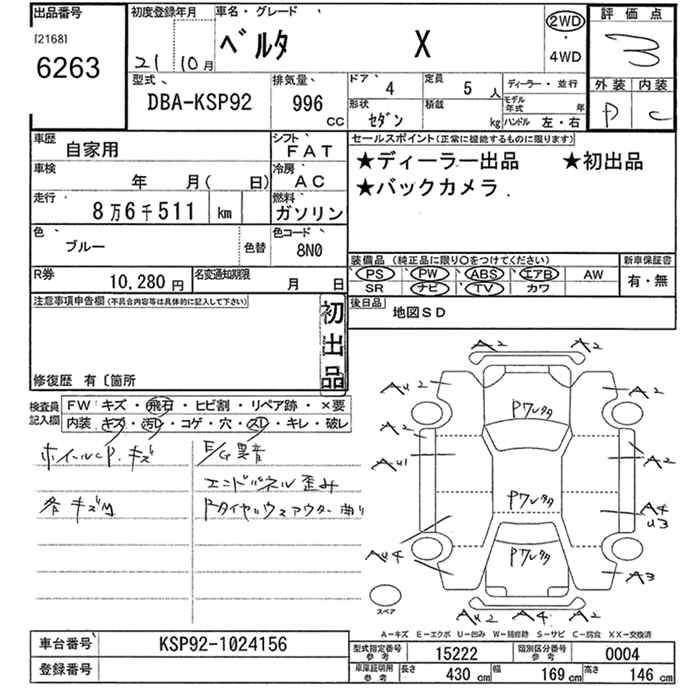 出品番号
[2168]
6263
初度登録年月
21 10月
車名・グレード
ベルタ X
2WD
・
4WD
評価点
3
外装 内装
D C
型式
DBA-KSP92
排気量
996
CC
ドア 4
定員 5 人
形状 セダン
積載 kg
ディーラー・並行
モデル年式 年
ハンドル 左・右
車歴
自家用
シフト
FAT
車検
年 月( 日)
冷房
AC
走行
8万6千511 km
燃料
ガソリン
色
ブルー
色替
色コード
8N0
R券
10,280円
名変通知期限
月 日
セールスポイント(正常に機能するものに限ります)
★ディーラー出品 ★初出品
★バックカメラ
装備品 (純正品に限り○をつけてください)
PS PW ABS エアB AW
SR ナビ TV カワ
新車保証書
有・無
後日品
地図SD
注意事項申告欄(不具合内容等は具体的に記入して下さい)
初出品
修復歴 有〔箇所
検査員記入欄
FW キズ・飛石・ヒビ割・リペア跡・×要
内装 キズ・汚レ・コゲ・穴・スレ・キレ・破レ
ホイールCP.キズ
E/G異音
エンドパネル歪み
各キズM
Fタイヤハウスアウター曲り
A2
A2
AU2
A2
A2
Pワレタタ
AU1
A2
Pワレタタ
A4
U3
AU4
Pワレタタ
A3
AU2 A4 A2
スペア
A-キズ E-エクボ U-凹み W-補修跡 S-サビ C-腐食 XX-交換済
車台番号
KSP92-1024156
登録番号
型式指定番号 参考
15222
類別区分番号 参考
0004
車庫証明用 参考
長さ 430 cm
幅 169 cm
高さ 146 cm